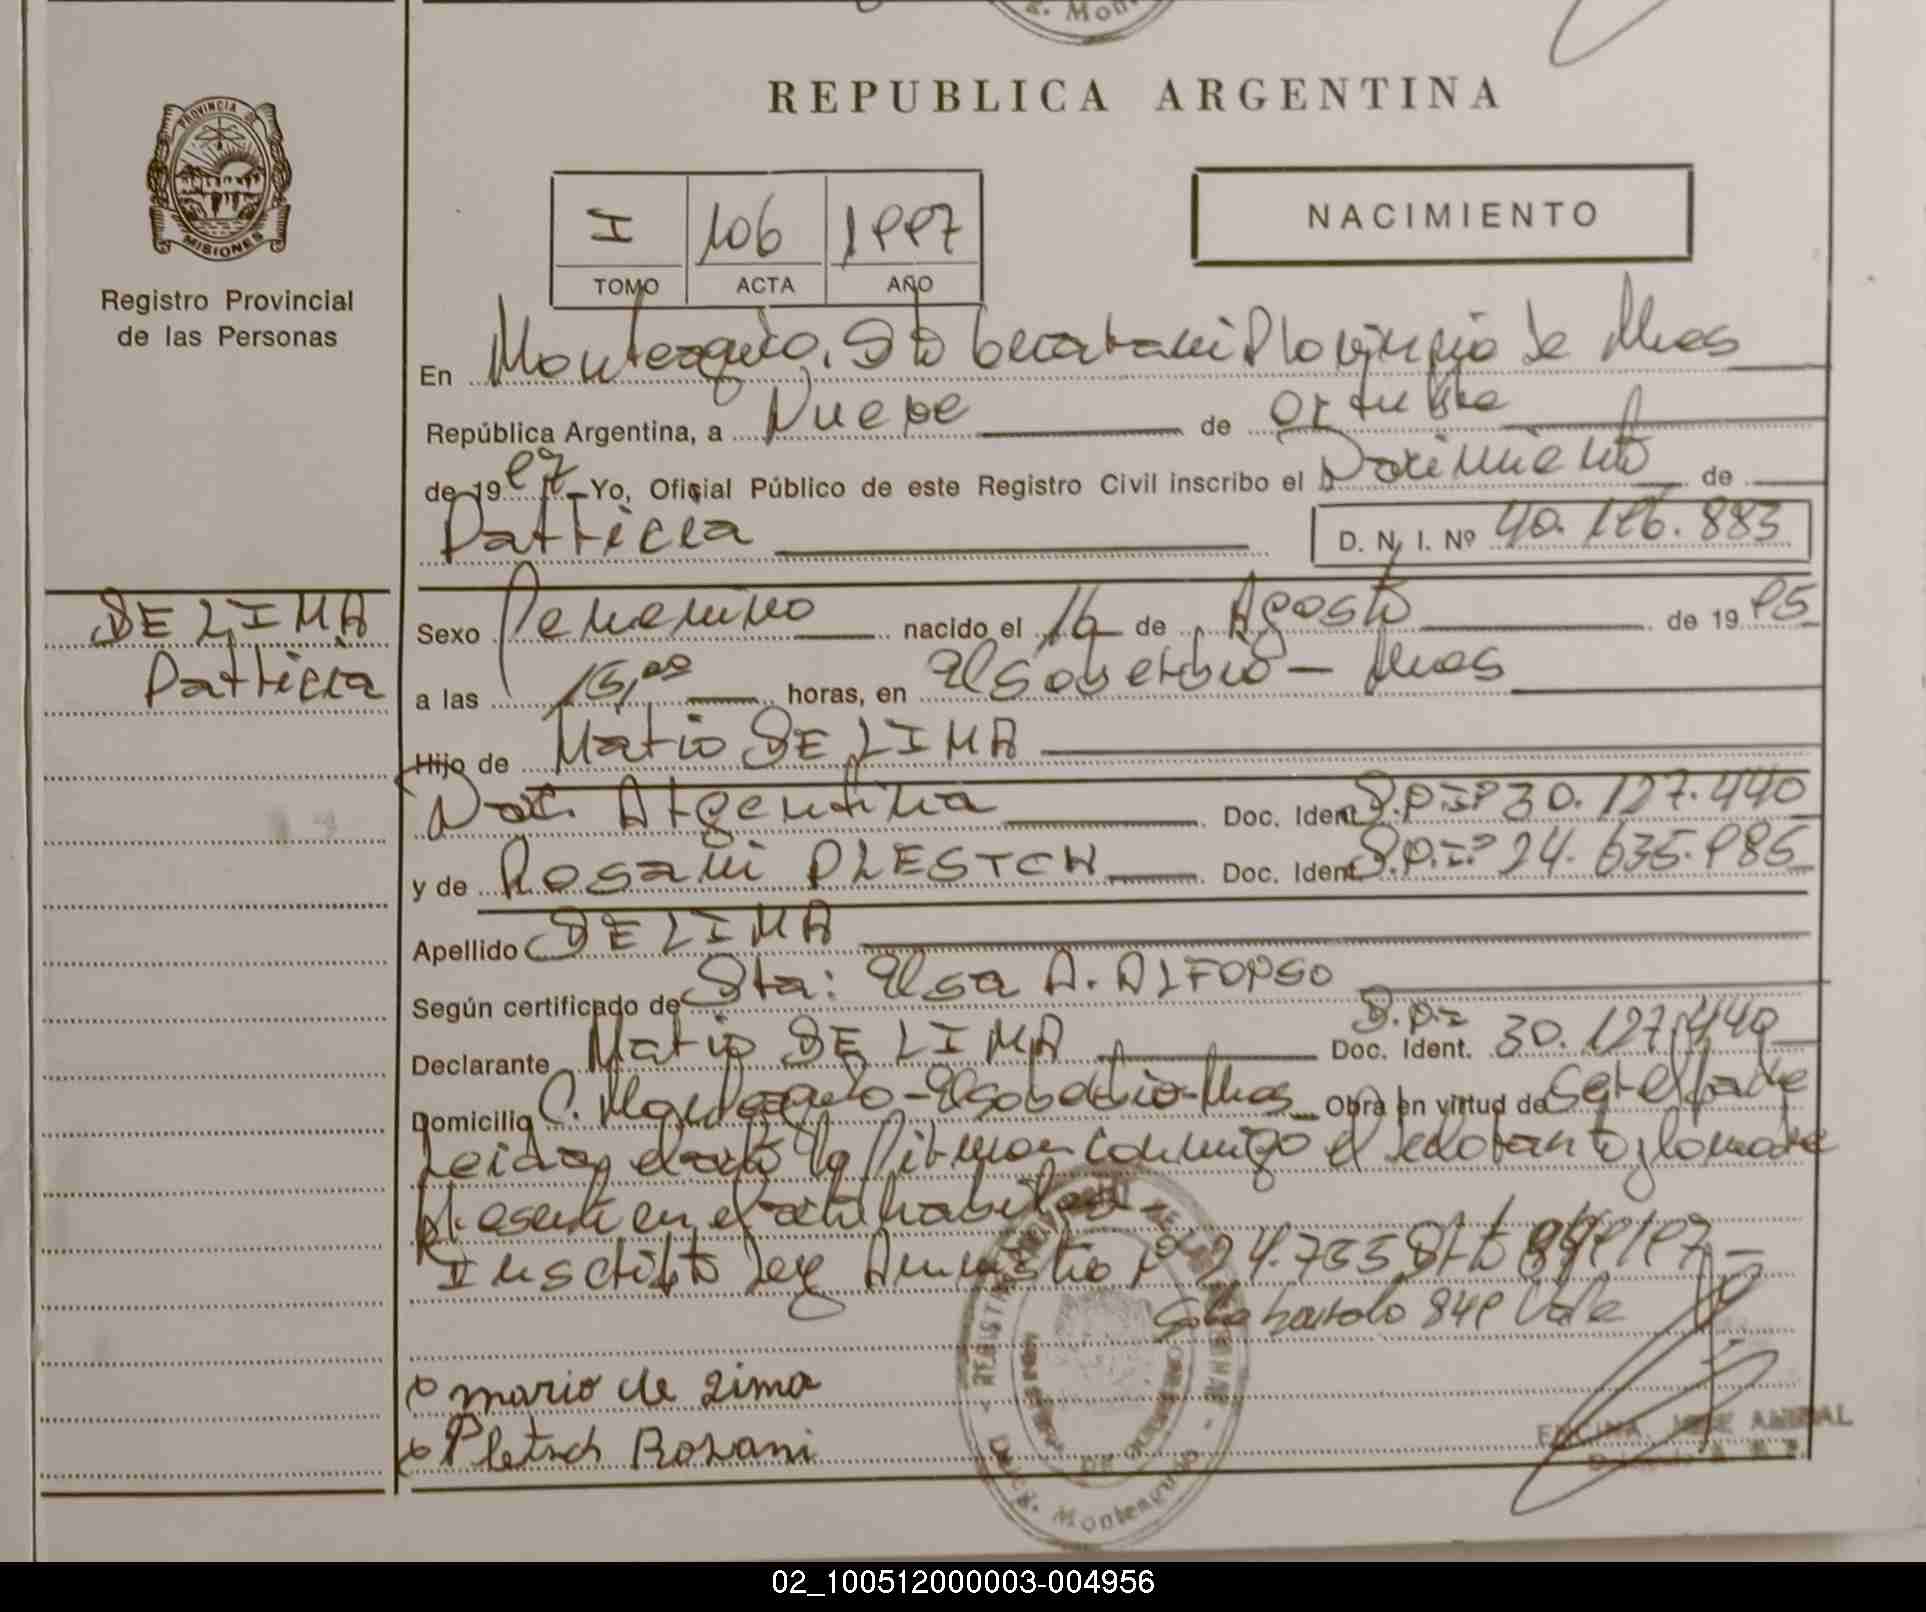 R. Mon
REPUBLICA ARGENTINA
PROVINCIA DE
MISIONES
Registro Provincial
de las Personas
I 106 1997
TOMO ACTA AÑO
NACIMIENTO
En Monteagudo, Dto Guarani Provincia de Mnes
República Argentina, a Nueve de Octubre
de 1997 Yo, Oficial Público de este Registro Civil inscribo el Nacimiento de
Patricia D. N. I. Nº 40.196.883
DE LIMA
Patricia
Sexo Femenino nacido el 16 de Agosto de 1995
a las 15,00 horas, en El Soberbio - Mnes
Hijo de Mario DE LIMA
Nac. Argentina Doc. Ident. D.N.I.Nº 30.127.440
y de Rosani PLESTCH Doc. Ident. D.N.I.Nº 24.635.985
Apellido DE LIMA
Según certificado de Sra: Elsa A. ALFONSO
Declarante Mario DE LIMA Doc. Ident. D.N.I. 30.127.440
Domicilio C. Monteagudo - El Soberbio - Mnes Obra en virtud de ser el padre
Leida el acta la firman conmigo el declarante y la madre
presente en el acto
Inscripto Ley Amnistia Nº 24.755 Dto 849/97 -
849 Vale
mario de Lima
Pletsch Rosani
Montenegro
ENCINA JOSE ANIBAL
02_100512000003-004956